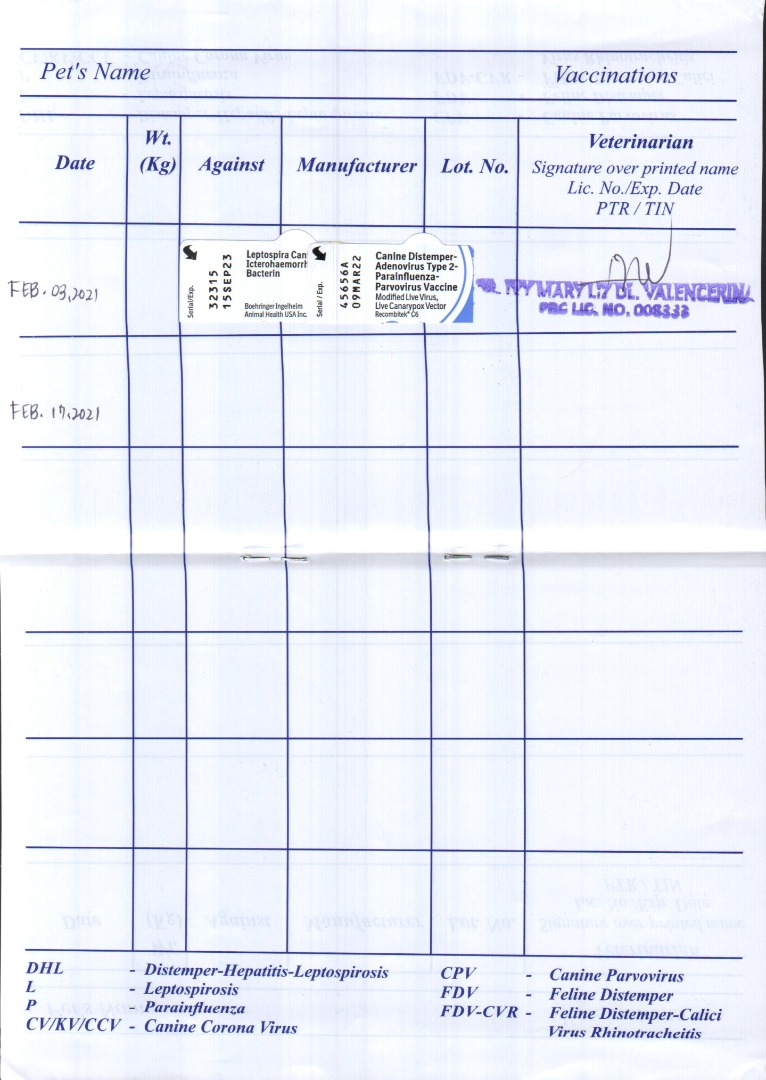 Pet's Name Vaccinations
Date Wt. (Kg) Against Manufacturer Lot. No. Veterinarian
Signature over printed name
Lic. No./Exp. Date
PTR / TIN
FEB. 03,2021
Serial/Exp.
32315
15SEP23
Leptospira Can
Icterohaemorrh
Bacterin
Boehringer Ingelheim
Animal Health USA Inc.
Serial / Exp.
45656A
09MAR22
Canine Distemper-
Adenovirus Type 2-
Parainfluenza-
Parvovirus Vaccine
Modified Live Virus,
Live Canarypox Vector
Recombitek® C6
PRC LIC. NO. 008333
FEB. 17,2021
DHL - Distemper-Hepatitis-Leptospirosis
L - Leptospirosis
P - Parainfluenza
CV/KV/CCV - Canine Corona Virus
CPV - Canine Parvovirus
FDV - Feline Distemper
FDV-CVR - Feline Distemper-Calici
Virus Rhinotracheitis